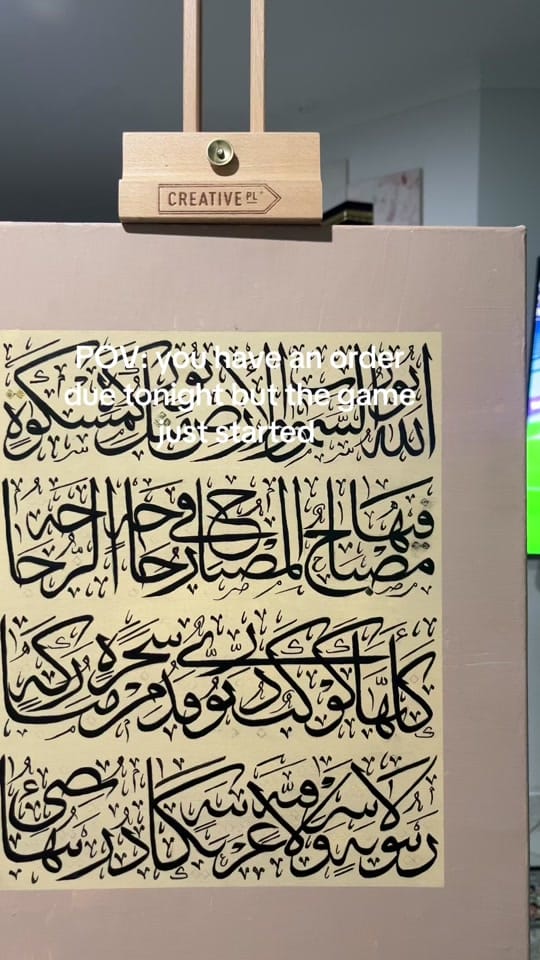 CREATIVE PL
POV: you have an order
due tonight but the game
just started
الله نور السموت والارض مثل نوره كمشكوة
فيها مصباح المصباح في زجاجة الزجاجة
كأنها كوكب دري يوقد من شجرة مباركة
زيتونة لا شرقية ولا غربية يكاد زيتها يضيء